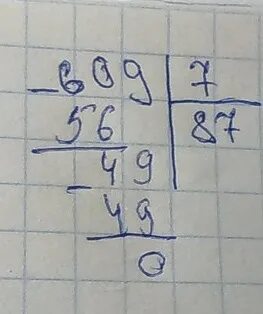 -609 7
56 87
-49
49
0